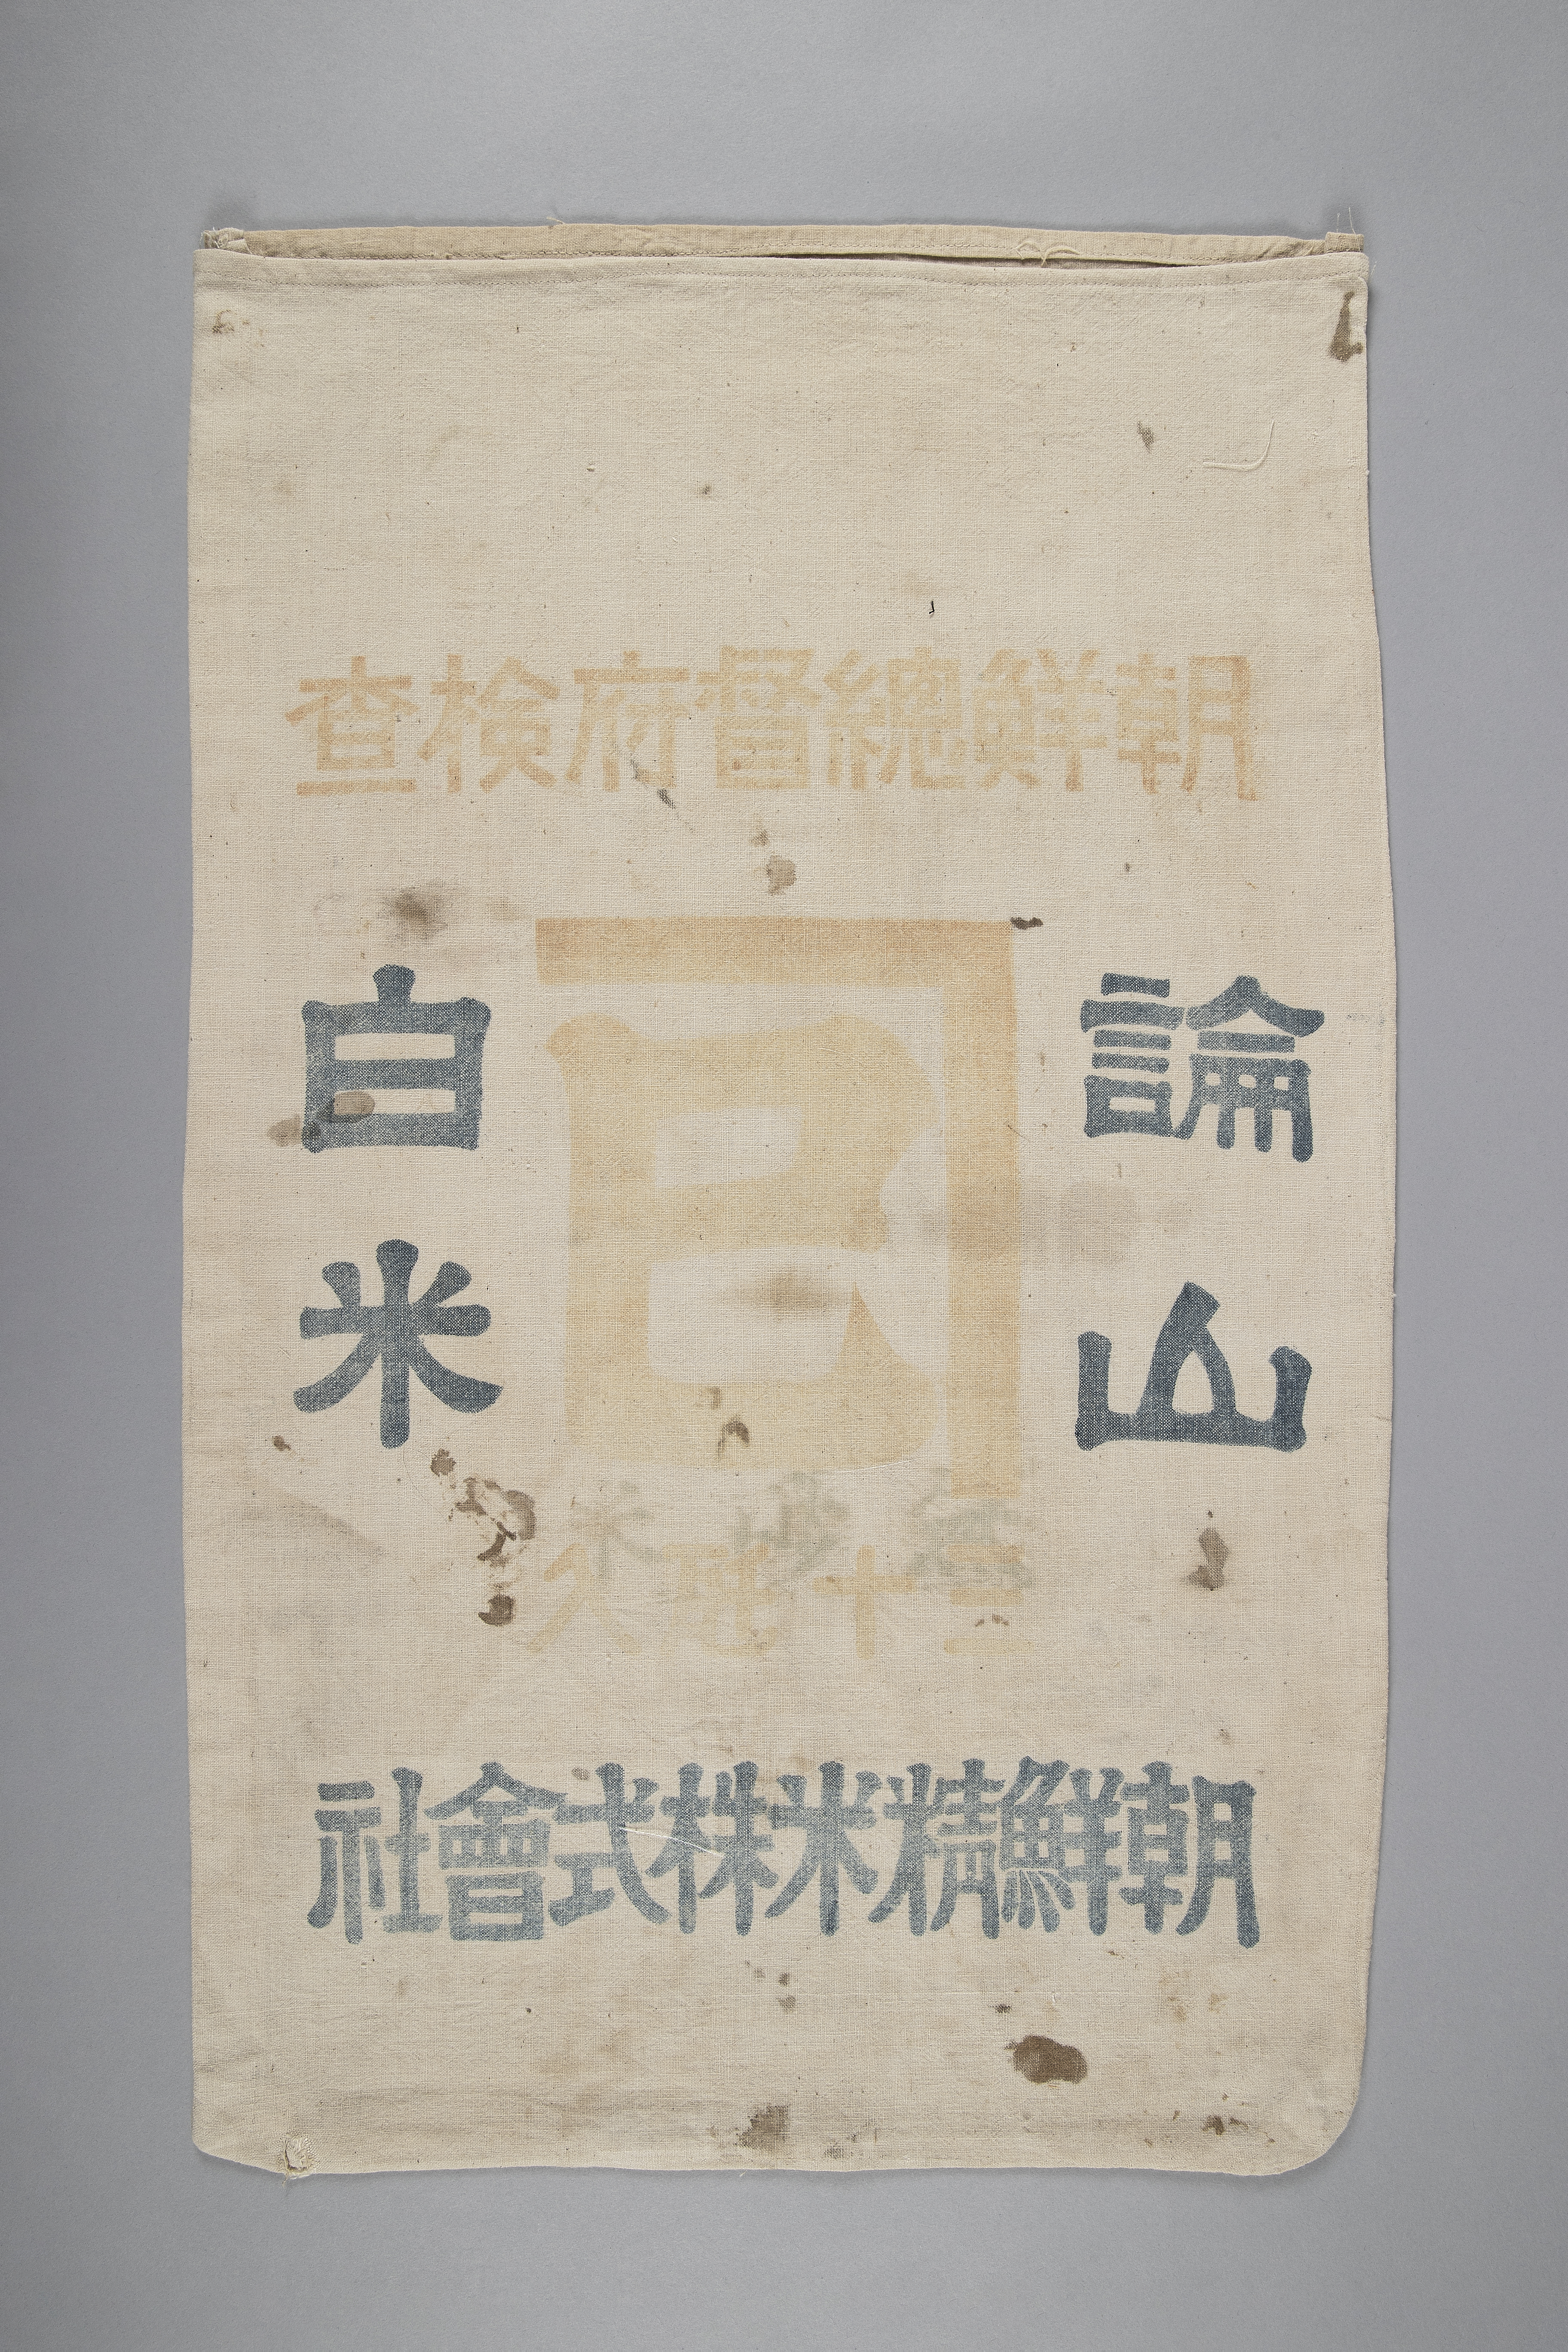 朝鮮總督府検査
論山
B
白米
三十瓩入
朝鮮精米株式會社